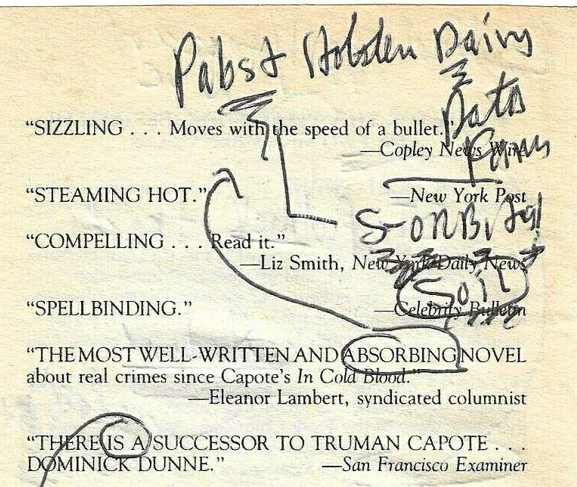 Pabst Holsten Dairy
Data
Farm
"SIZZLING . . . Moves with the speed of a bullet."
—Copley News Wire
"STEAMING HOT."
—New York Post
"COMPELLING . . . Read it."
—Liz Smith, New York Daily News
Soil
"SPELLBINDING."
—Celebrity Bulletin
"THE MOST WELL-WRITTEN AND ABSORBING NOVEL
about real crimes since Capote's In Cold Blood."
—Eleanor Lambert, syndicated columnist
"THERE IS A SUCCESSOR TO TRUMAN CAPOTE . . .
DOMINICK DUNNE."
—San Francisco Examiner